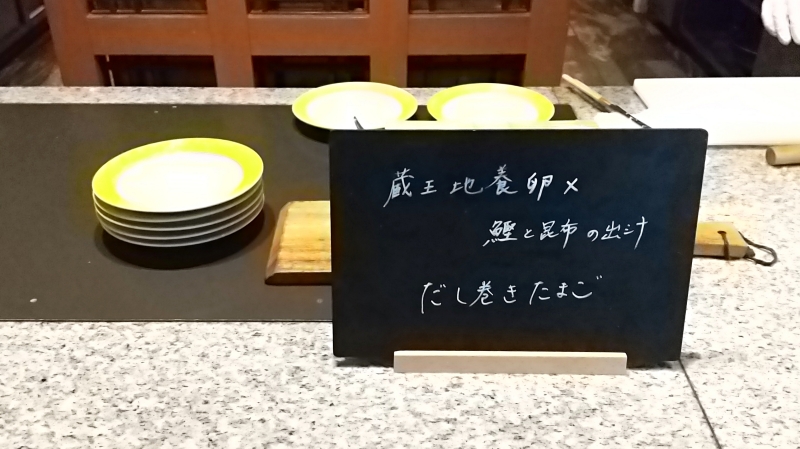 蔵王地養卵×
鰹と昆布の出汁
だし巻きたまご